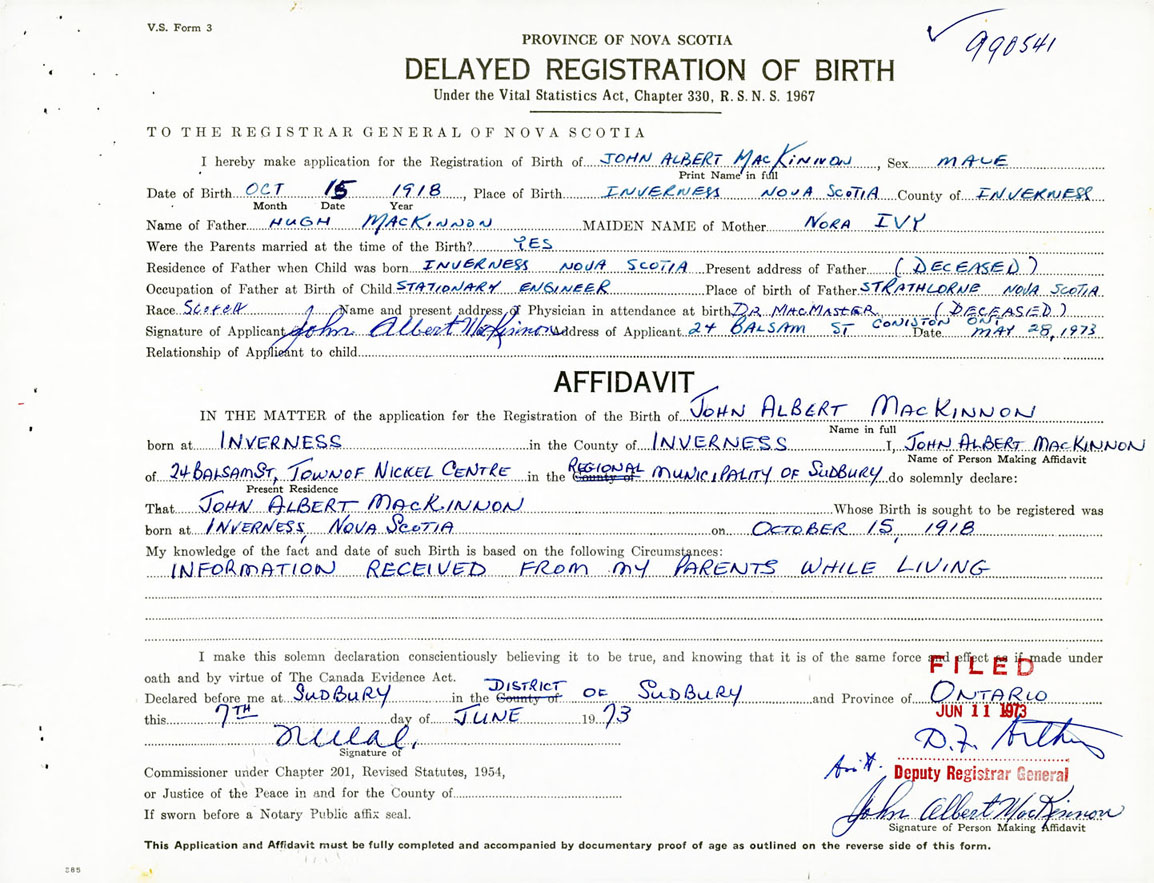 V.S. Form 3
990541
PROVINCE OF NOVA SCOTIA
DELAYED REGISTRATION OF BIRTH
Under the Vital Statistics Act, Chapter 330, R. S. N. S. 1967
TO THE REGISTRAR GENERAL OF NOVA SCOTIA
I hereby make application for the Registration of Birth of JOHN ALBERT MACKINNON, Sex MALE
Print Name in full
Date of Birth OCT 15 1918, Place of Birth INVERNESS NOVA SCOTIA County of INVERNESS
Month Date Year
Name of Father HUGH MACKINNON MAIDEN NAME of Mother NORA IVY
Were the Parents married at the time of the Birth? YES
Residence of Father when Child was born INVERNESS NOVA SCOTIA Present address of Father (DECEASED)
Occupation of Father at Birth of Child STATIONARY ENGINEER Place of birth of Father STRATHLORNE NOVA SCOTIA
Race Scotch Name and present address of Physician in attendance at birth DR MACMASTER (DECEASED)
Signature of Applicant John Albert MacKinnon Address of Applicant 24 BALSAM ST CONISTON ONT Date MAY 28, 1973
Relationship of Applicant to child
AFFIDAVIT
IN THE MATTER of the application for the Registration of the Birth of JOHN ALBERT MACKINNON
Name in full
born at INVERNESS in the County of INVERNESS I, JOHN ALBERT MACKINNON
Name of Person Making Affidavit
of 24 BALSAM ST, TOWN OF NICKEL CENTRE in the County of REGIONAL MUNICIPALITY OF SUDBURY do solemnly declare:
Present Residence
That JOHN ALBERT MACKINNON Whose Birth is sought to be registered was
born at INVERNESS, NOVA SCOTIA on OCTOBER 15, 1918
My knowledge of the fact and date of such Birth is based on the following Circumstances:
INFORMATION RECEIVED FROM MY PARENTS WHILE LIVING
I make this solemn declaration conscientiously believing it to be true, and knowing that it is of the same force and effect as if made under
FILED
oath and by virtue of The Canada Evidence Act.
Declared before me at SUDBURY in the County of DISTRICT OF SUDBURY and Province of ONTARIO
this 7TH day of JUNE 1973
JUN 11 1973
Signature of
Commissioner under Chapter 201, Revised Statutes, 1954,
Deputy Registrar General
or Justice of the Peace in and for the County of
John Albert MacKinnon
If sworn before a Notary Public affix seal.
Signature of Person Making Affidavit
This Application and Affidavit must be fully completed and accompanied by documentary proof of age as outlined on the reverse side of this form.